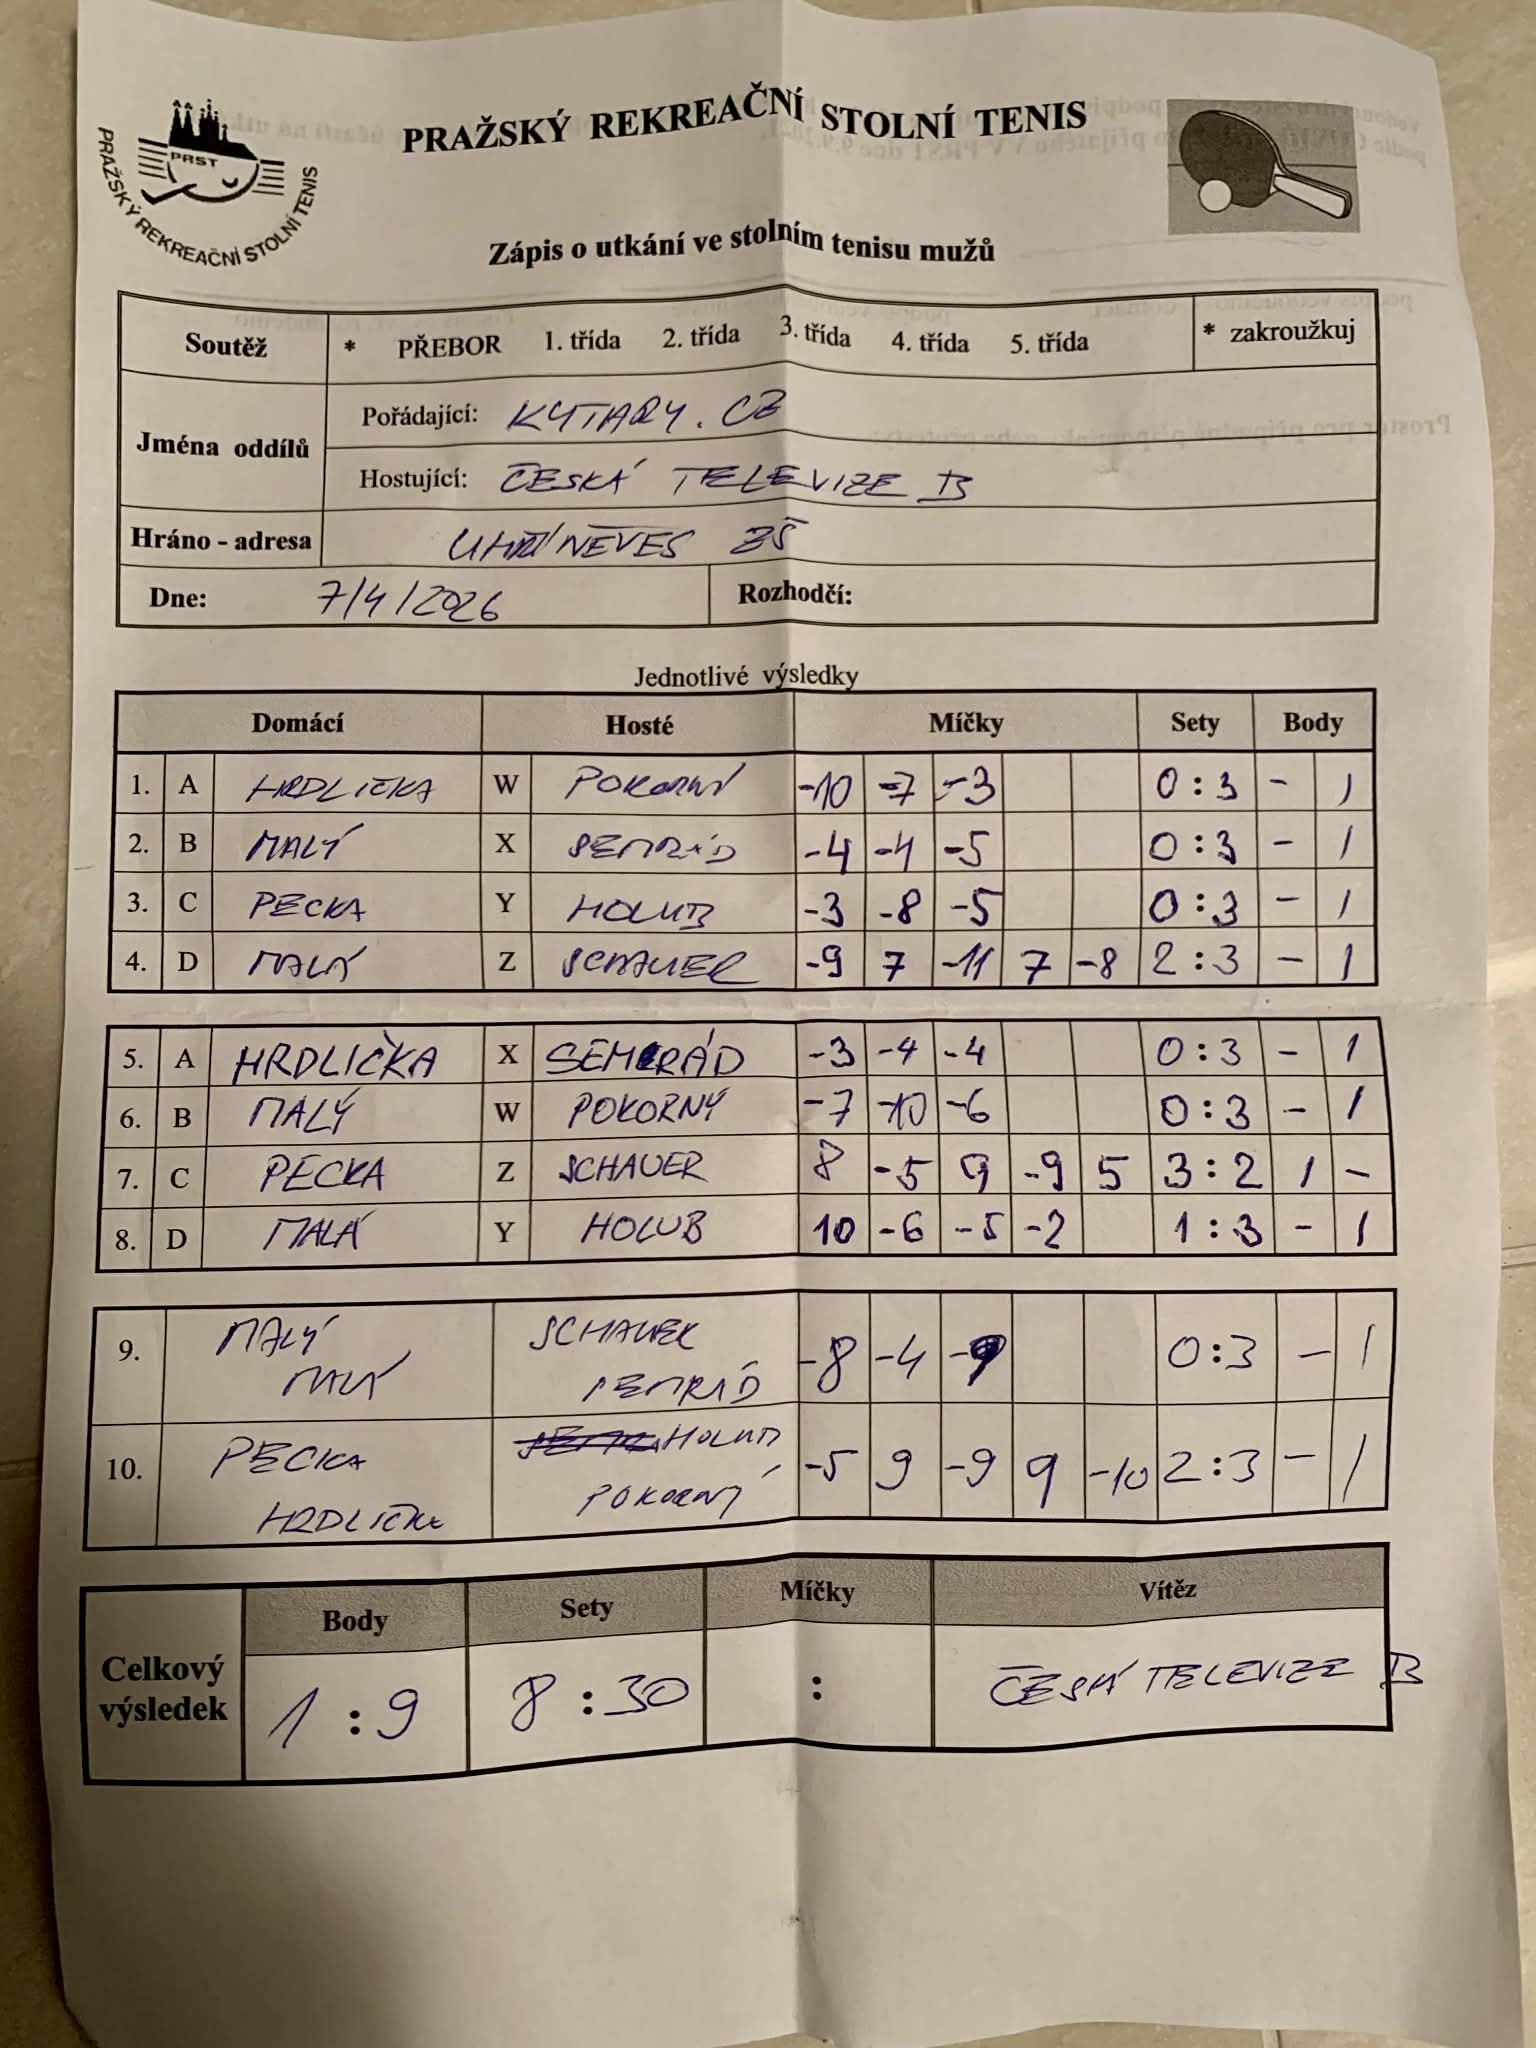 PRAŽSKÝ REKREAČNÍ STOLNÍ TENIS
PRST
PRAŽSKÝ REKREAČNÍ STOLNÍ TENIS
Zápis o utkání ve stolním tenisu mužů
Soutěž * PŘEBOR 1. třída 2. třída 3. třída 4. třída 5. třída * zakroužkuj
Jména oddílů
Pořádající: KYTARY.CZ
Hostující: ČESKÁ TELEVIZE B
Hráno - adresa UHŘÍNĚVES ZŠ
Dne: 7/4/2026 Rozhodčí:
Jednotlivé výsledky
Domácí Hosté Míčky Sety Body
1. A HRDLIČKA W POKORNÝ -10 -7 -3 0:3 - 1
2. B MALÝ X SEMRÁD -4 -4 -5 0:3 - 1
3. C PECKA Y HOLUB -3 -8 -5 0:3 - 1
4. D MALÁ Z SCHAUER -9 7 -11 7 -8 2:3 - 1
5. A HRDLIČKA X SEMRÁD -3 -4 -4 0:3 - 1
6. B MALÝ W POKORNÝ -7 -10 -6 0:3 - 1
7. C PECKA Z SCHAUER 8 -5 9 -9 5 3:2 1 -
8. D MALÁ Y HOLUB 10 -6 -5 -2 1:3 - 1
9. MALÝ SCHAUER -8 -4 -9 0:3 - 1
MALÁ SEMRÁD
10. PECKA HOLUB -5 9 -9 9 -10 2:3 - 1
HRDLIČKA POKORNÝ
Celkový výsledek
Body Sety Míčky Vítěz
1:9 8:30 : ČESKÁ TELEVIZE B